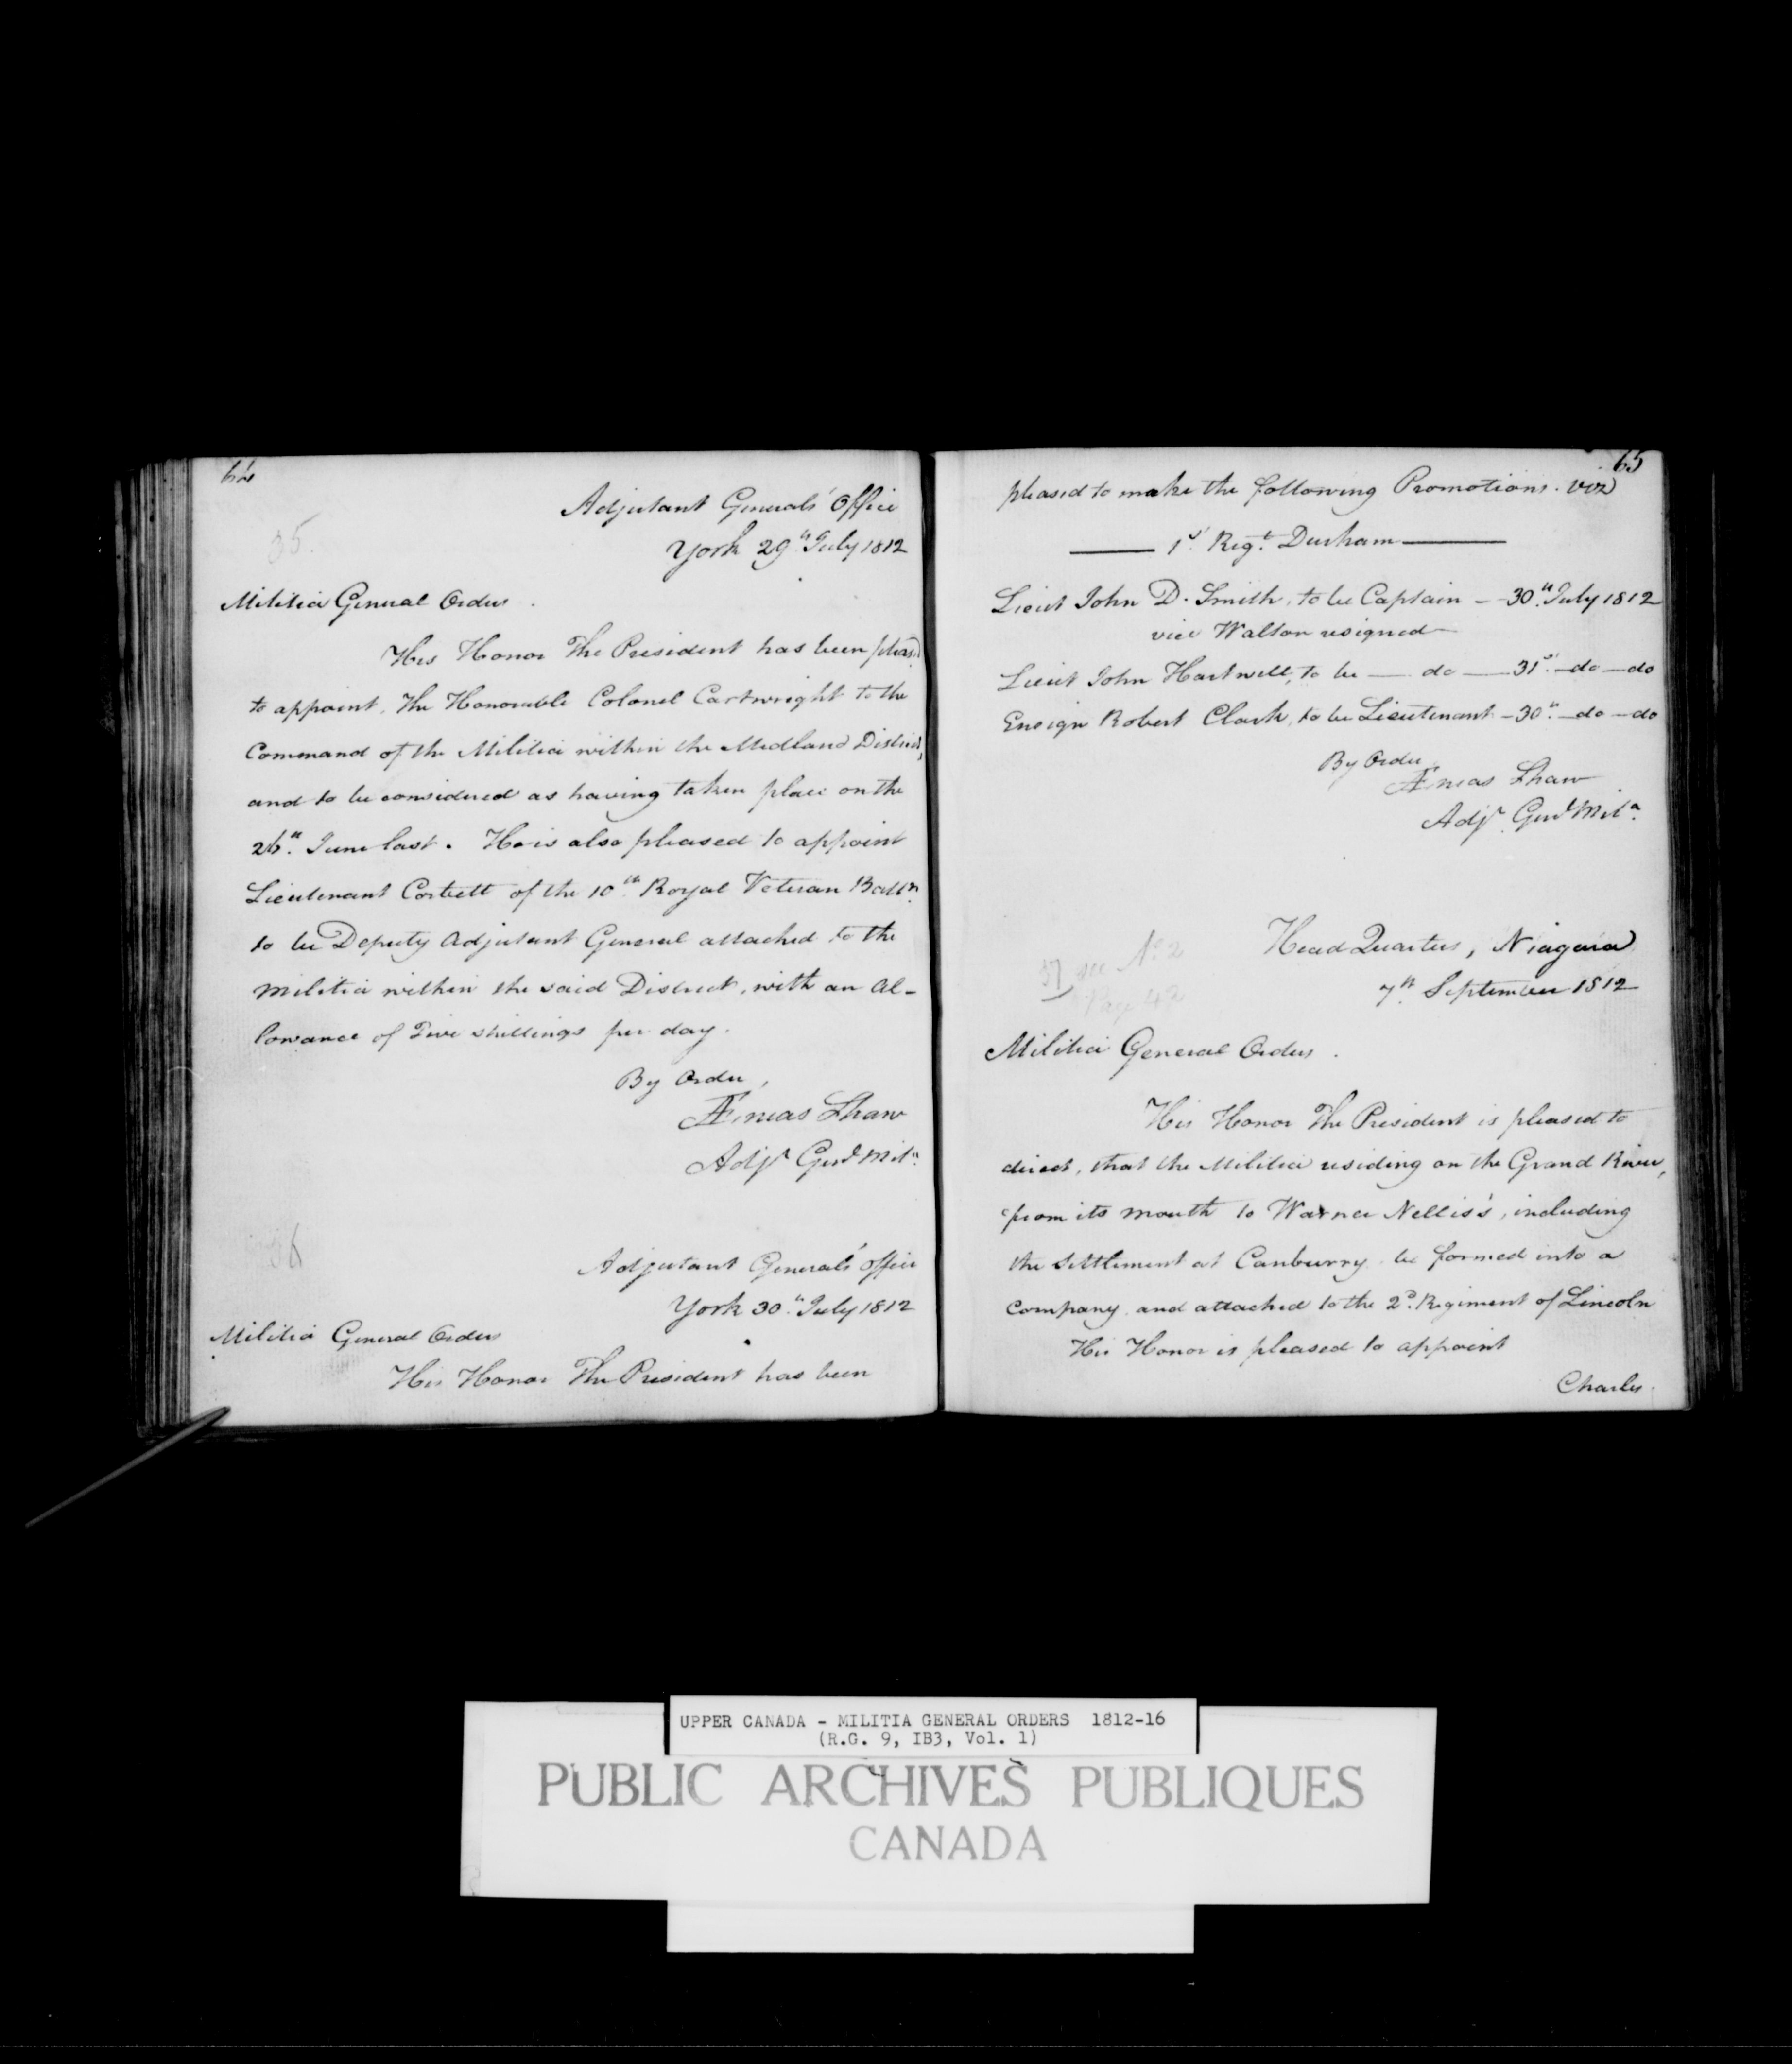 64
35.
Adjutant General's Office
York 29th July 1812
Militia General Orders.
His Honor The President has been pleased
to appoint, the Honorable Colonel Cartwright to the
Command of the Militia within the Midland District,
and to be considered as having taken place on the
26th June last. He is also pleased to appoint
Lieutenant Corbett of the 10th Royal Veteran Battn.
to be Deputy Adjutant General attached to the
Militia within the said District, with an al-
lowance of Five shillings per day.
By Order,
Æneas Shaw
Adjt. Genl. Mila.
36
Adjutant General's office
York 30th July 1812
Militia General Orders
His Honor The President has been
65
pleased to make the following Promotions. Viz
1st. Regt. Durham
Lieut John D. Smith, to be Captain — 30th July 1812
vice Walton resigned
Lieut John Hartwell, to be — do — 31st. — do — do
Ensign Robert Clark, to be Lieutenant — 30th — do — do
By Order,
Æneas Shaw
Adjt. Genl. Mila.
37 see No. 2
Page 42
Head Quarters, Niagara
7th September 1812
Militia General Orders.
His Honor The President is pleased to
direct, that the Militia residing on the Grand River,
from its mouth to Warner Nellis's, including
the settlement at Canburry be formed into a
Company and attached to the 2d. Regiment of Lincoln
His Honor is pleased to appoint
Charles
UPPER CANADA - MILITIA GENERAL ORDERS 1812-16
(R.G. 9, IB3, Vol. 1)
PUBLIC ARCHIVES PUBLIQUES
CANADA